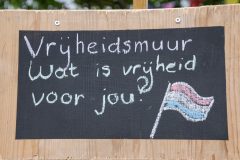 Vrijheidsmuur
Wat is vrijheid
voor jou?